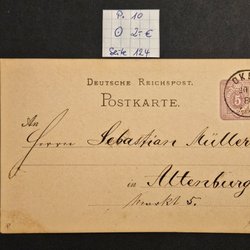 P. 10
O 2,-€
Seite 124
DEUTSCHE REICHSPOST.
POSTKARTE.
An
Herrn Sebastian Müller
in Altenburg
Markt 5.